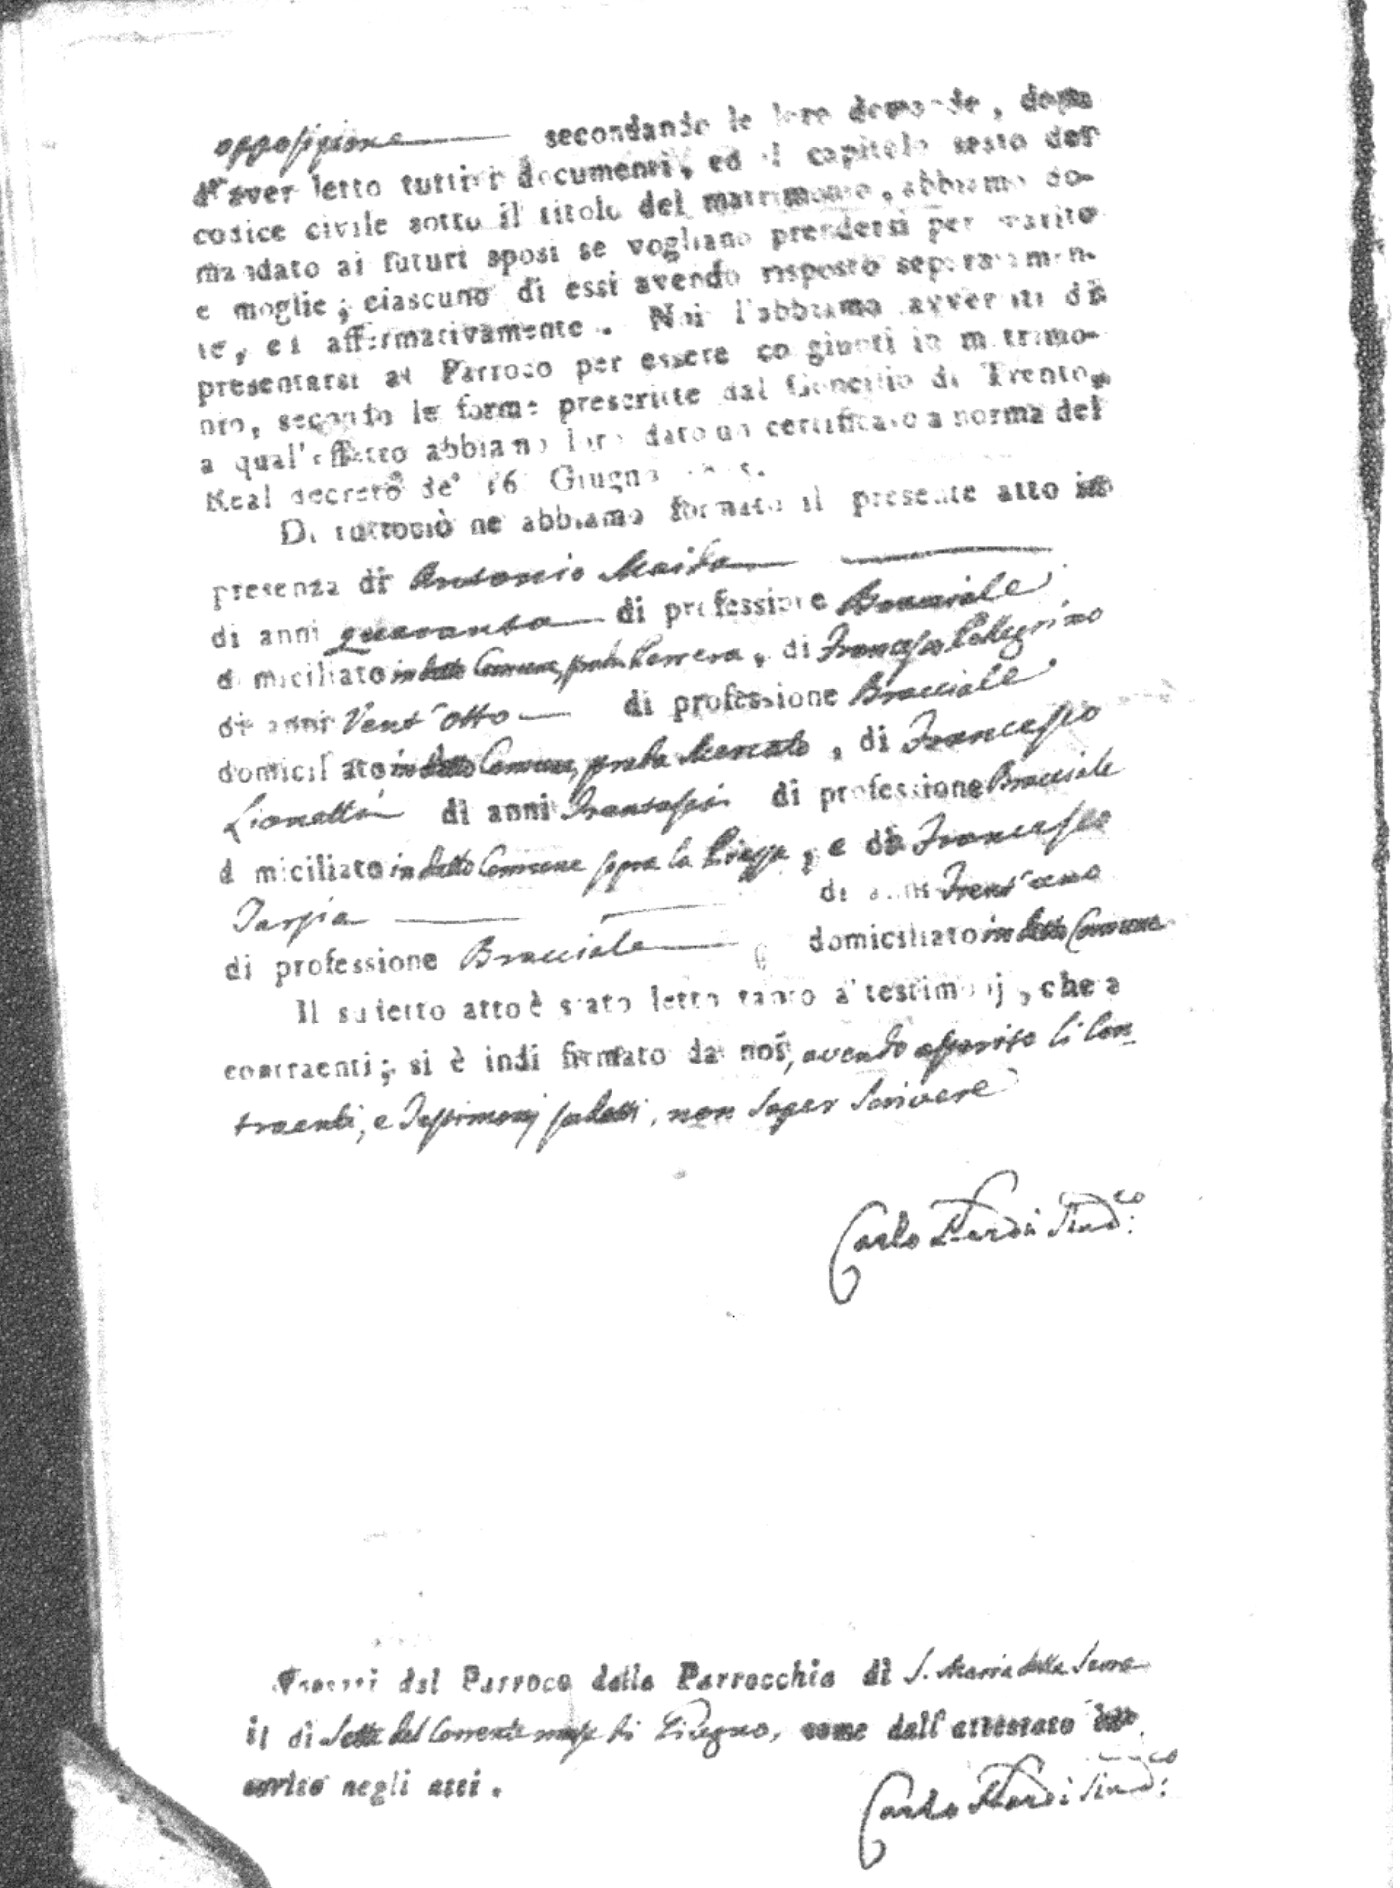 opposizione secondando le loro domande, dopo
d'aver letto tutti i documenti, ed il capitolo sesto del
codice civile sotto il titolo del matrimonio, abbiamo do-
mandato ai futuri sposi se vogliano prendersi per marito
e moglie; ciascuno di essi avendo risposto separatamen-
te, ed affirmativamente. Noi l'abbiamo avvertiti di
presentarsi al Parroco per essere congiunti in matrimo-
nio, secondo le forme prescritte dal Concilio di Trento,
a qual'effetto abbiamo loro dato un certificato a norma del
Real decreto de' 16 Giugno
Di tuttociò ne abbiamo formato il presente atto in
presenza di Antonio
di anni quaranta di professione Bracciale
domiciliato in detto Comune, di Francesco Pellegrino
di anni Vent'otto di professione Bracciale
domiciliato in detto Comune, Mercato, di Francesco
Lionetti di anni Trentasei di professione Bracciale
domiciliato in detto Comune sopra la, e di Francesco
Tarsia di anni Trent'uno
di professione Bracciale domiciliato in detto Comune
Il sudetto atto è stato letto tanto a' testimonj, che a
contraenti; si è indi firmato da noi, avendo asserito li Con-
traenti, e Testimonj sudetti, non saper scrivere
Carlo Sind.co
dal Parroco della Parrocchia di S. Maria della Serra
il dì Sette del Corrente mese di Giugno, come dall'attestato
negli atti.
Carlo Sind.co